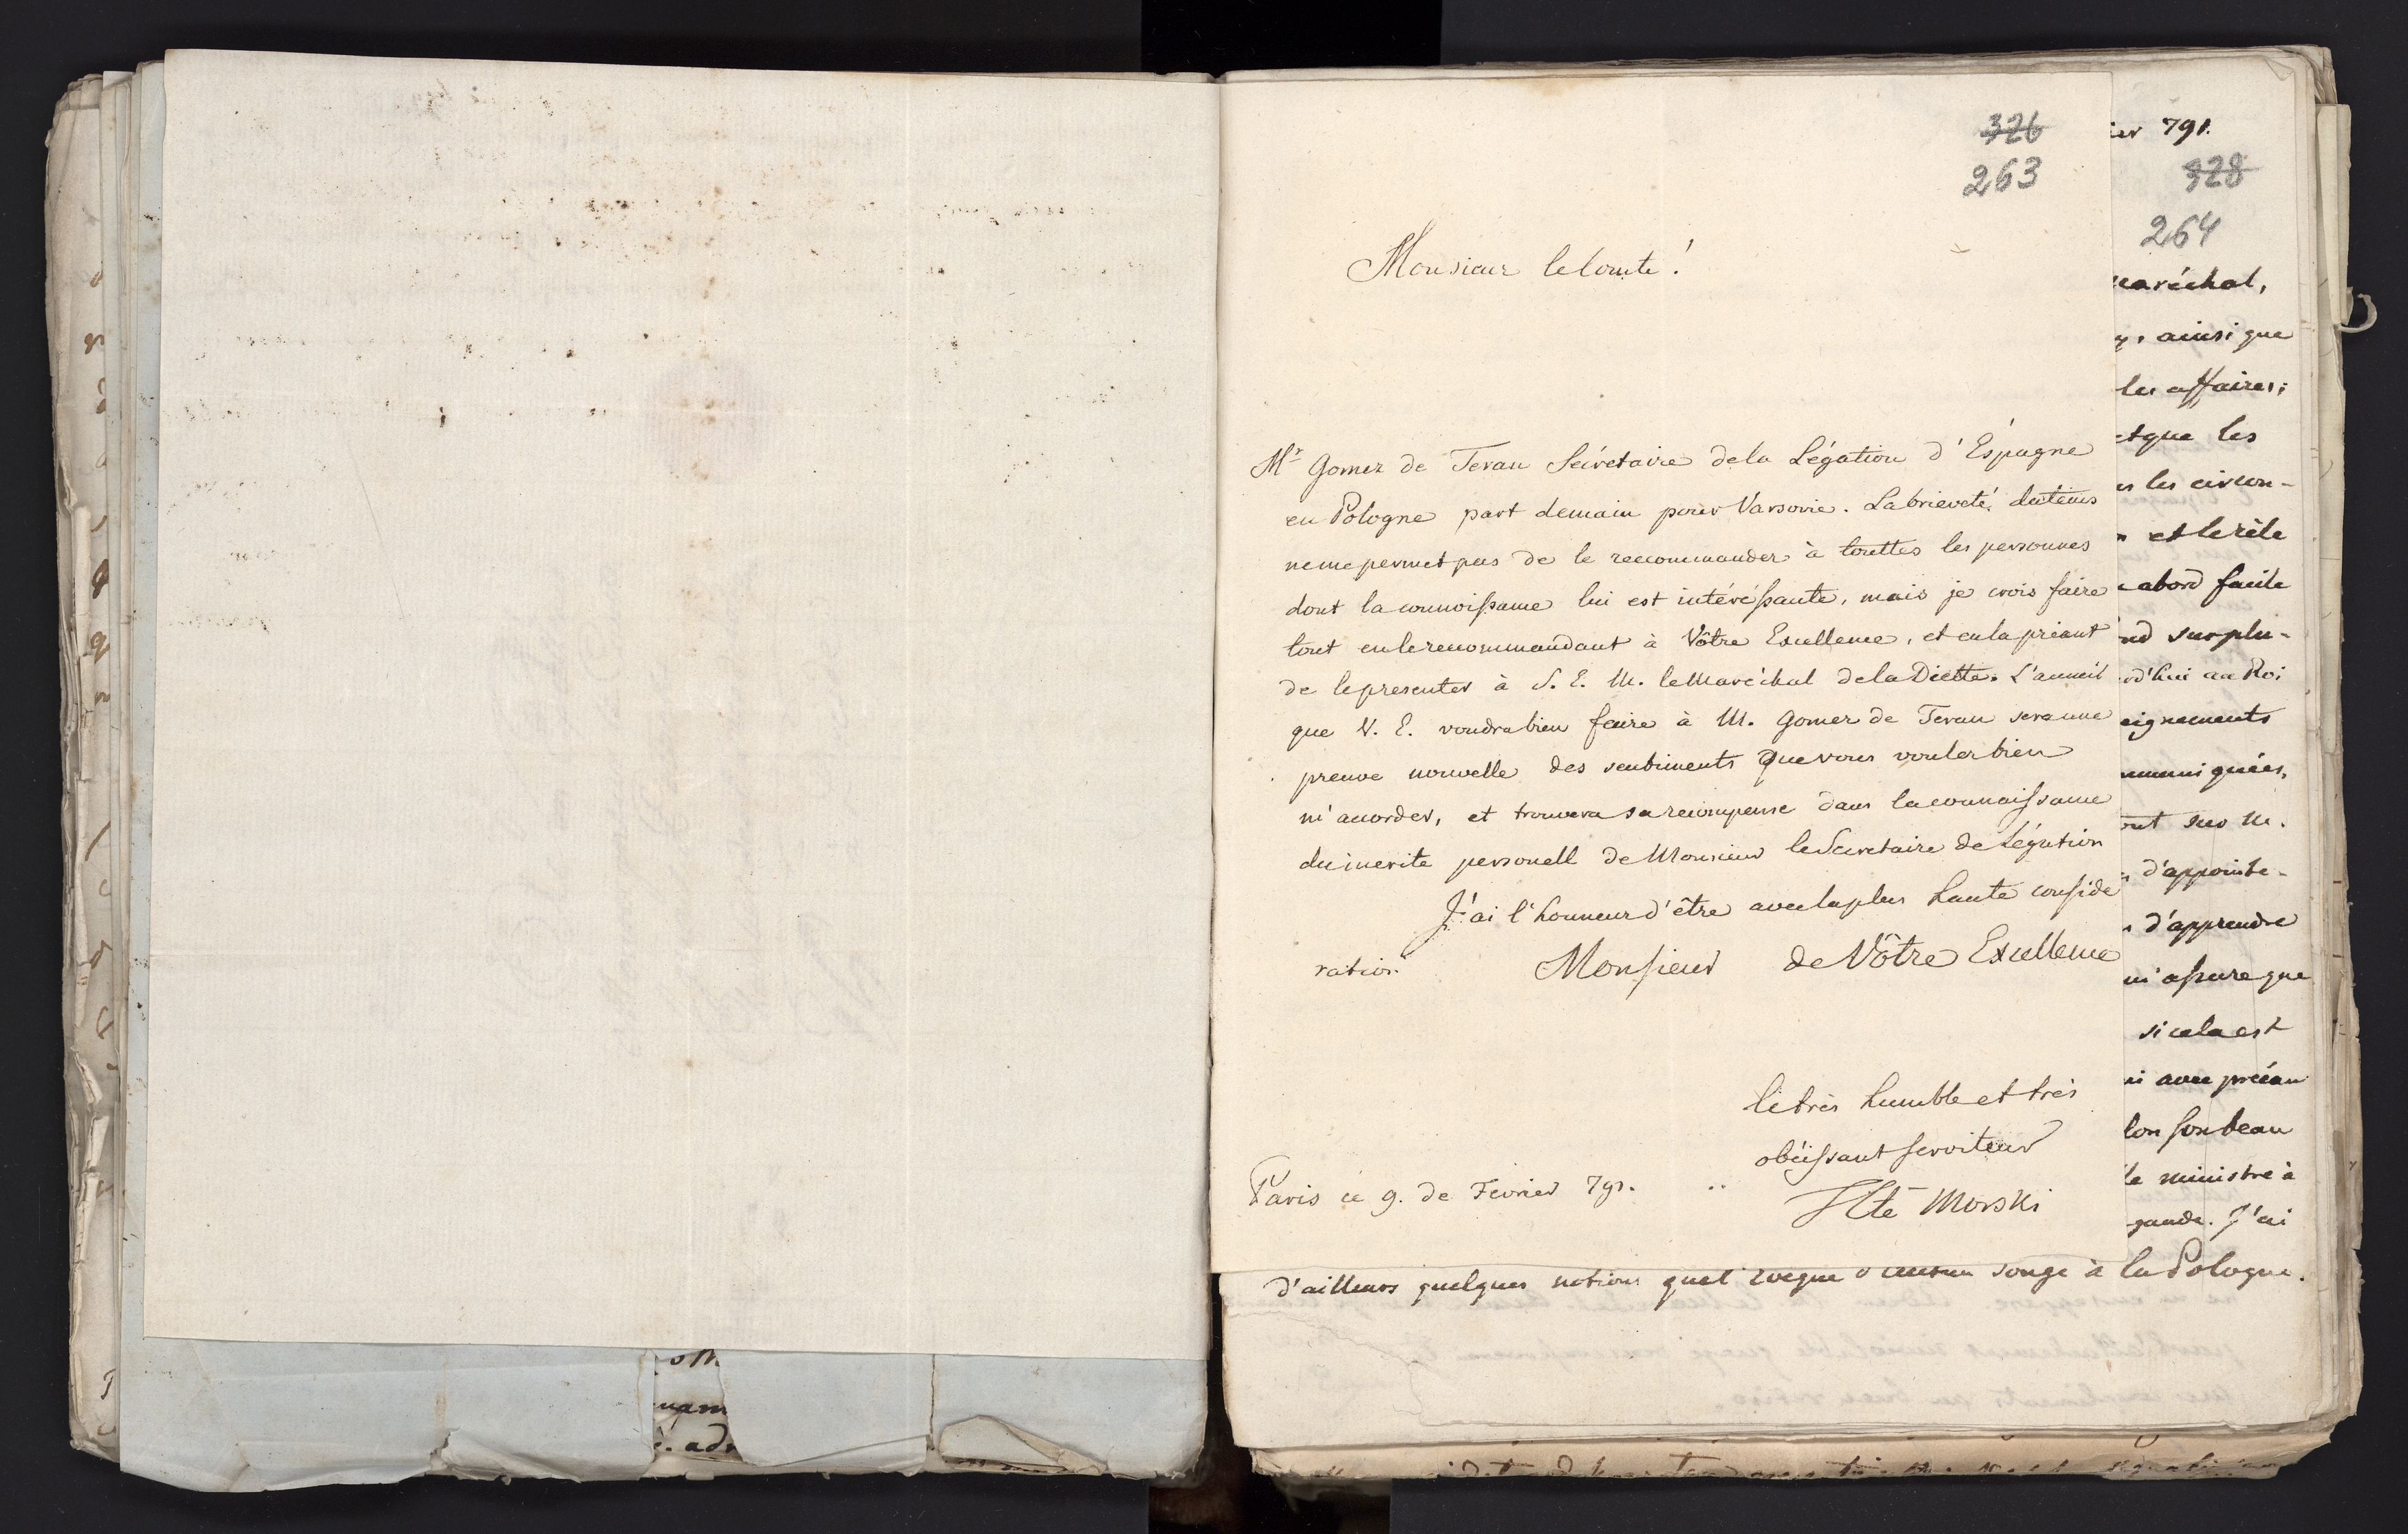 326
263
Monsieur le Comte!
Mr Gomez de Teran Sécretaire de la Légation d'Espagne
en Pologne part demain pour Varsovie. La brieveté du tems
ne me permet pas de le recommander à touttes les personnes
dont la connoissance lui est intéréssante, mais je crois faire
tout en le recommandant à Vôtre Excellence, et en la priant
de le presenter à S. E. M. le Maréchal de la Diette. L'acceuil
que V. E. voudra bien faire à M. Gomez de Teran sera une
preuve nouvelle des sentiments que vous voulez bien
m'accorder, et trouvera sa recompense dans la connaissance
du merite personell de Monsieur le Secretaire de Légation
J'ai l'honneur d'être avec la plus haute conside
ration Monsieur de Vôtre Excellence
le très humble et très
obéissant serviteur
Paris ce 9. de Fevrier 791.
Cte Morski
ier 791.
328
264
maréchal,
ainsi que
les affaires;
et que les
les circon-
et le rôle
abord facile
surplu-
d'hui au Roi
eignements
muniquées,
sur M.
d'appointe-
d'apprendre
m'assure que
si cela est
avec précau
lon son beau
le ministre à
gande. J'ai
d'ailleurs quelques notions que l' songe à la Pologne.